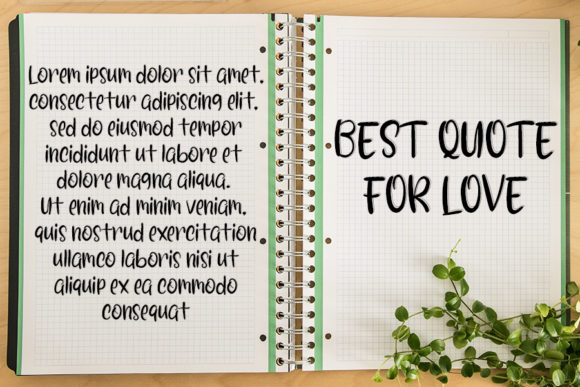 Lorem ipsum dolor sit amet.
consectetur adipiscing elit.
sed do eiusmod tempor
incididunt ut labore et
dolore magna aliqua.
Ut enim ad minim veniam.
quis nostrud exercitation
ullamco laboris nisi ut
aliquip ex ea commodo
consequat
BEST QUOTE
FOR LOVE